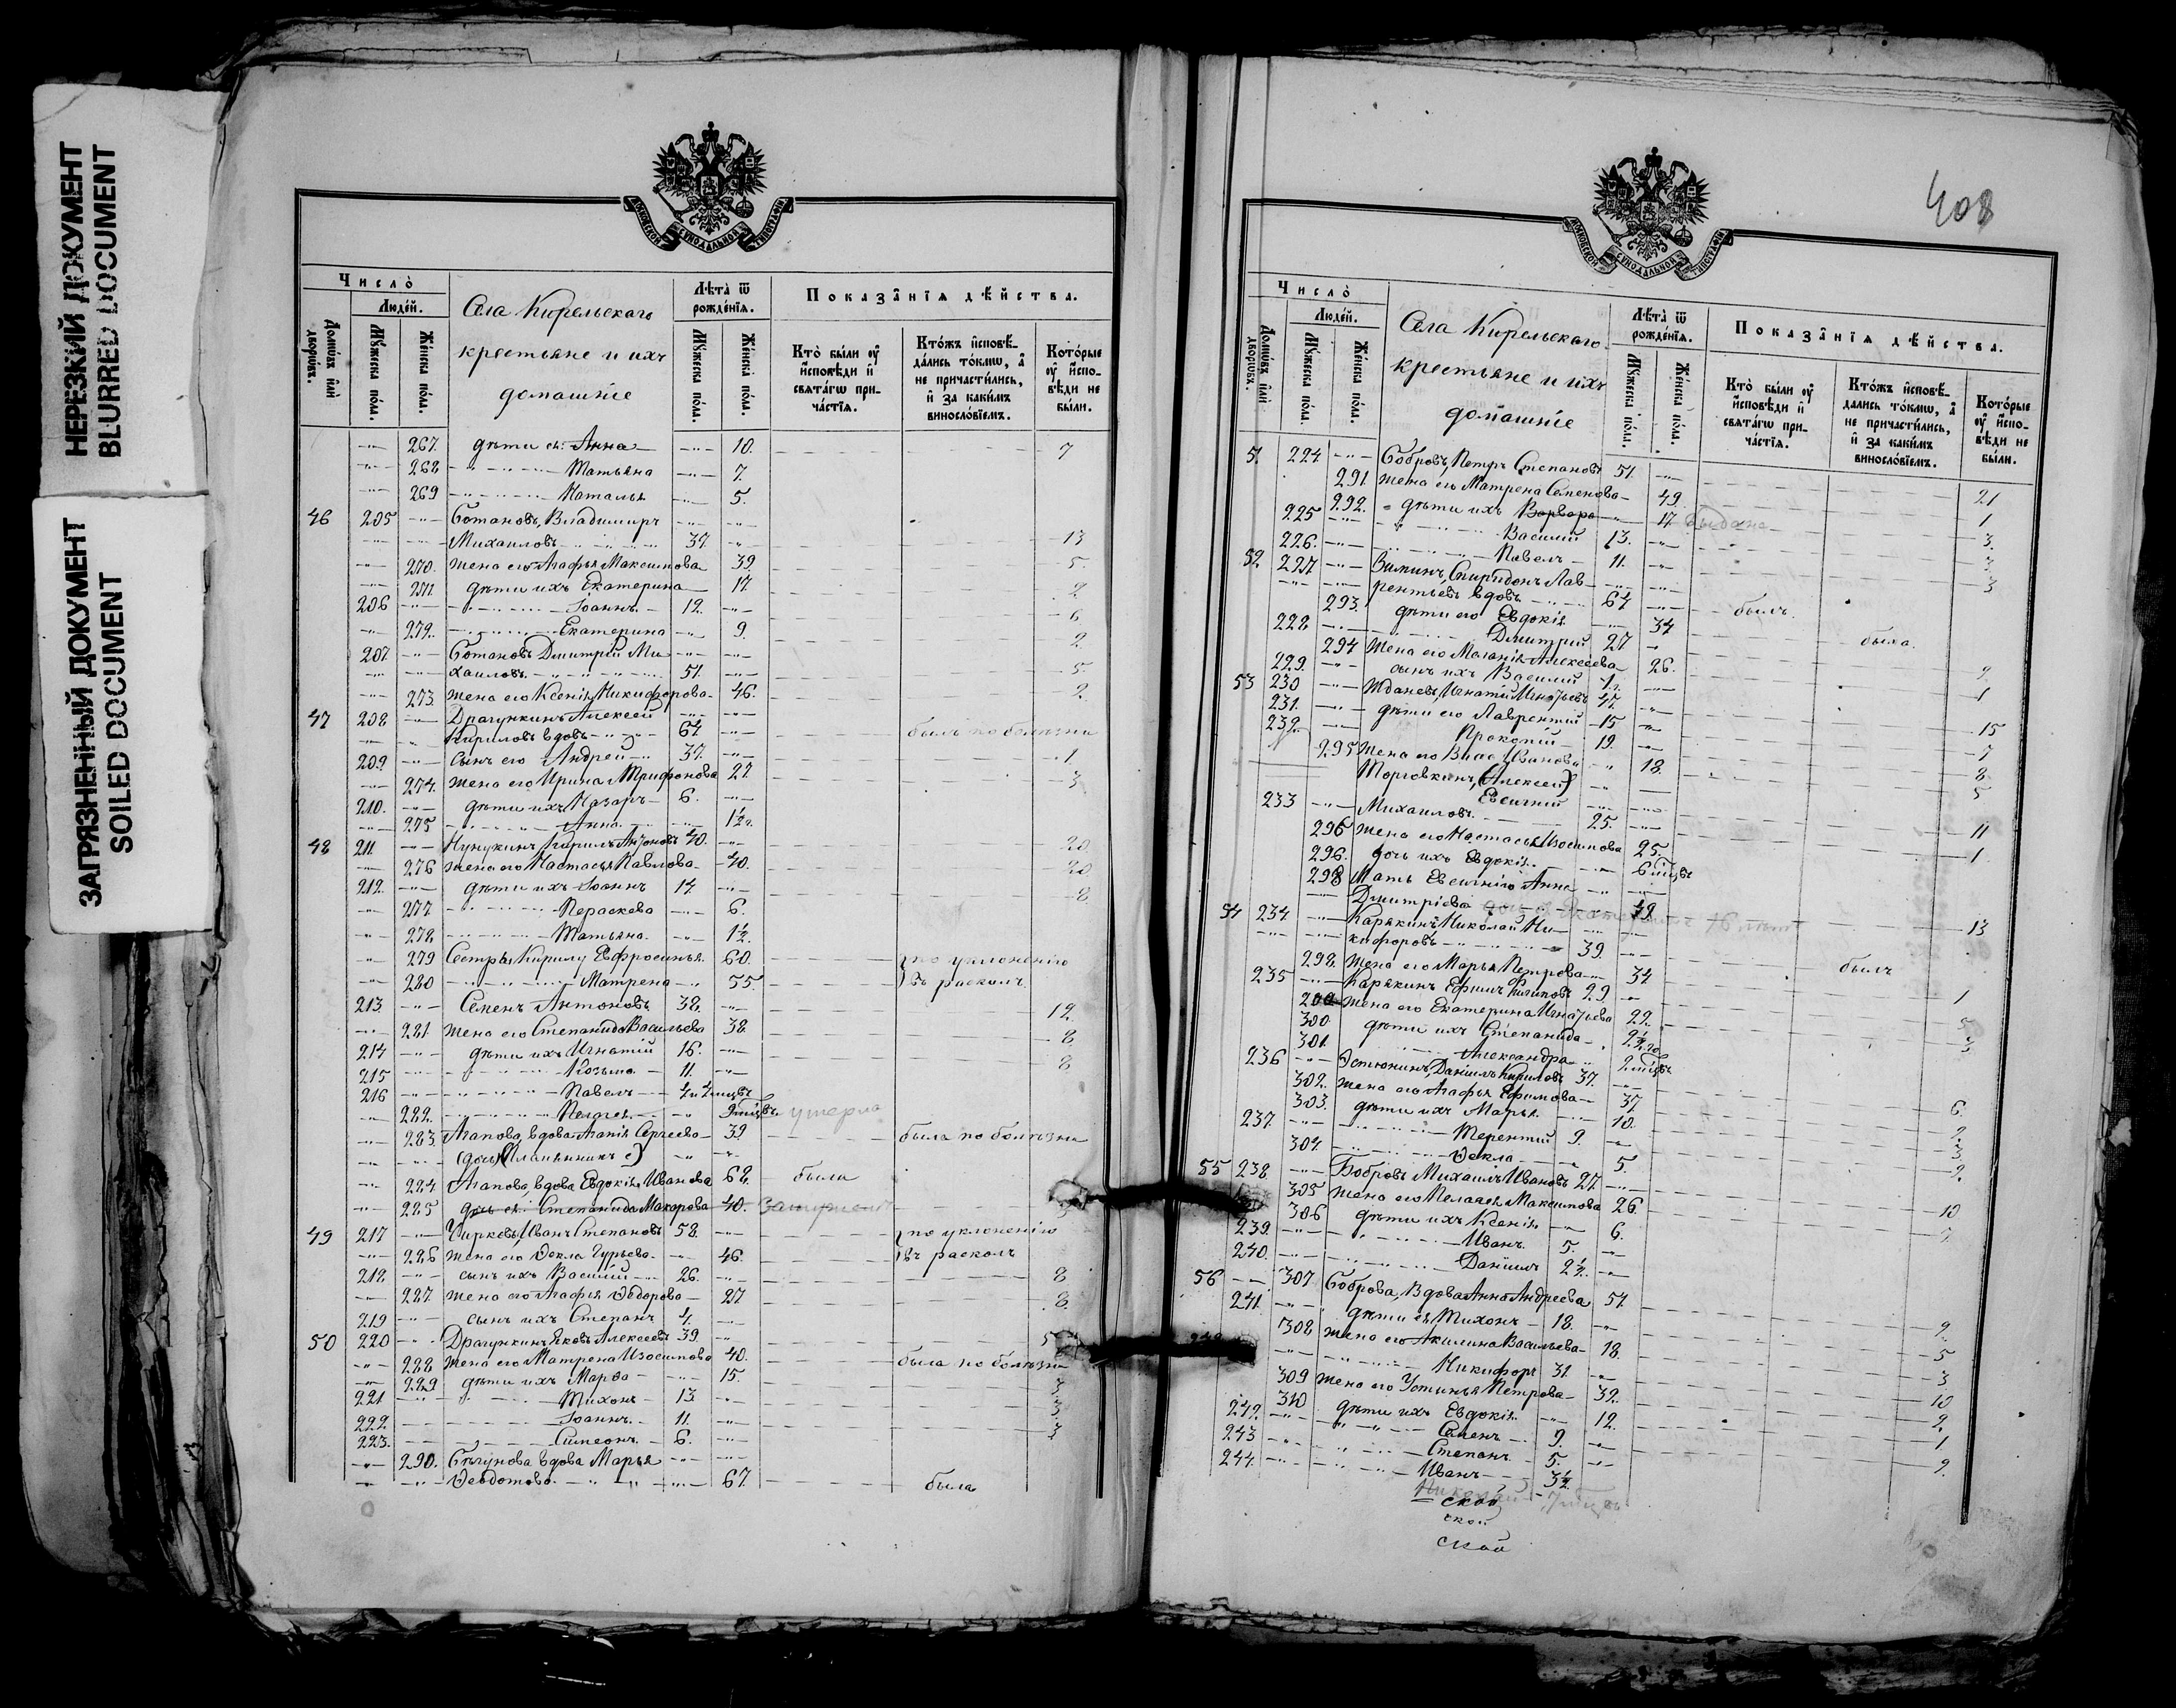 НЕРЕЗКИЙ ДОКУМЕНТ
BLURRED DOCUMENT
ЗАГРЯЗНЕННЫЙ ДОКУМЕНТ
SOILED DOCUMENT
МОСКОВСКОЙ СУНОДАЛЬНОЙ ТИПОГРАФІИ
Число̀
Людей.
Домѡвъ или дворѡвъ.
Мꙋжеска пола.
Женска пола.
Села Кирельскаго
крестьяне и ихъ
домашніе
Лѣта ѿ рожденїѧ.
Мꙋжеска пола.
Женска пола.
Показанїѧ дѣйства.
Кто были ꙋ исповѣди и свѧтагѡ причастїѧ.
Ктожъ исповѣдались токмѡ, а не причастились, и за какимъ винословїемъ.
Которые ꙋ исповѣди не были.
267. дѣти ея: Анна 10. 7
268 Татьяна 7.
269 Наталья 5.
46 205 Ботановъ, Владимиръ
Михаиловъ 37. 13
270. жена его Агафья Максимова 39. 5.
271. дѣти ихъ Екатерина 17. 2
206 Іоаннъ 12. 6
272. Екатерина 9. 2
207. Ботановъ Дмитрій Ми-
хаиловъ 51. 5
273. жена его Ксенія Никифорова 46. 2
47 208 Драгункинъ Алексѣй
Кириловъ вдовъ 64. былъ по болѣзни
209 сынъ его Андрей 37. 1
274. жена его Ирина Трифонова 27 3
210. дѣти ихъ Назаръ 6.
275 Анна 1½ г.
48 211. Нунукинъ Кирилъ Антоновъ 40. 20
276 жена его Настасья Павлова 40. 20
212. дѣти ихъ Іоаннъ 14. 8
277 Пераскева 6.
278. Татьяна 1½.
279 Сестры Кирилу Ефросинья 60. по уклоненію
280 Матрена 55. въ расколъ
213. Семенъ Антоновъ 38. 12
281 жена его Степанида Васильева 38. 8
214 дѣти ихъ Игнатій 16. 8
215 Козьма 11.
216 Павелъ
282. Пелагея умерла
283. Агапова, вдова Агапія Сергеева 39 была по болѣзни
284 Агапова, вдова Евдокія Иванова 68. была
285 дочь ея Степанида Макарова 40.
49 217 Чирковъ, Иванъ Степановъ 58. по уклоненію
286 жена его Ѳекла Гурьева 46. въ расколъ
218 сынъ ихъ Василій 26. 8
287 жена его Агафья Ѳедорова 27 8
219 сынъ ихъ Степанъ 4.
50 220 Драгункинъ Яковъ Алексѣевъ 39. 5
288 жена его Матрена Изосимова 40. была по болѣзни
289 дѣти ихъ Марѳа 15. 3
221 Тихонъ 13. 3
222. Іоаннъ 11. 3
223. Симеонъ 6.
290. Бѣгунова вдова Марья
Ѳеодотова 67. была
408
МОСКОВСКОЙ СУНОДАЛЬНОЙ ТИПОГРАФІИ
Число̀
Людей.
Домѡвъ или дворѡвъ.
Мꙋжеска пола.
Женска пола.
Села Кирельскаго
крестьяне и ихъ
домашніе
Лѣта ѿ рожденїѧ.
Мꙋжеска пола.
Женска пола.
Показанїѧ дѣйства.
Кто были ꙋ исповѣди и свѧтагѡ причастїѧ.
Ктожъ исповѣдались токмѡ, а не причастились, и за какимъ винословїемъ.
Которые ꙋ исповѣди не были.
51. 224 Бобровъ, Петръ Степановъ 51. 21
291. жена его Матрена Семенова 49. 1
292. дѣти ихъ Варвара 17 выдана 3.
225 Василій 13. 3
226. Павелъ 11. 3
52 227 Зиминъ, Спиридонъ Лав-
рентьевъ вдовъ 64 былъ
293. дѣти его Евдокія 34 была
228 Дмитрій 27
294 жена его Меланія Алексеева 26. 2
229. сынъ ихъ Василій 1 г. 1
53 230 Ждановъ, Игнатій Игнатьевъ 47. 15
231. дѣти его Лаврентій 15 7
232. Прокопій 19. 8
295 жена его Васса Иванова 18. 5
Торговкинъ, (Алексей)
Евсигній
233 Михаиловъ 25. 11
296 жена его Настасья Изосимова 25. 1
296. дочь ихъ Евдокія 6 мѣцъ
298 Мать Евсигнію Анна
Дмитріева 49 13
54 234 Карякинъ Николай Ни-
кифоровъ 39.
298. жена его Марья Петрова 34 былъ
235 Карякинъ Ефимъ 29. 1
жена его Екатерина Игнатьева 22. 5
300 дѣти ихъ Степанида 2½ год. 3
301. Александра 2 мѣцъ
236 Эстюнинъ, Даніилъ Кириловъ 37. 6.
302. жена его Агафья Ефимова 37 2.
303. дѣти ихъ Марья 10. 3
237. Терентій 9. 2.
304. Ѳекла 5.
55 238. Бобровъ Михаилъ Ивановъ 27. 10
305 жена его Пелагея Максимова 26. 2
306 дѣти ихъ Ксенія 6.
239. Иванъ 5.
240. Даніилъ 2½.
56 307 Боброва, Вдова Анна Андреева 54 9
241. дѣти ея Тихонъ 18. 5
308 жена его Акилина Васильева 18. 3
Никифоръ 31. 10
309 жена его Устинья Петрова 32. 2.
310 дѣти ихъ Евдокія 12. 1
242. Семенъ 9. 2.
243 Степанъ 5.
244. Иванъ 3½
ской
ской
ской